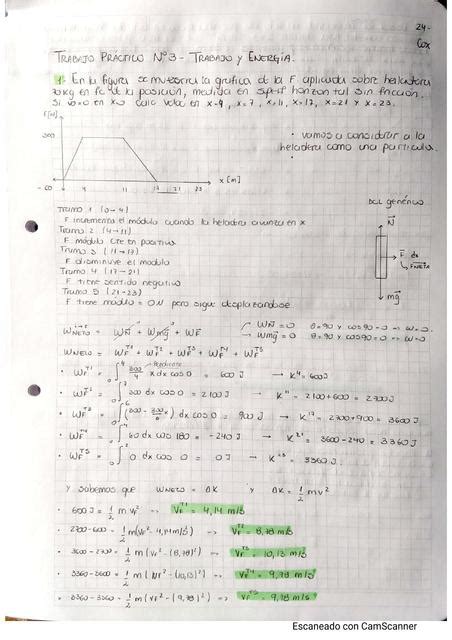 24-
Cox
TRABAJO PRÁCTICO Nº3 - TRABAJO Y ENERGÍA.
1- En la figura se muestra la gráfica de la F aplicada sobre heladera
70kg en fc de la posición, medida en superf horizontal sin fricción.
Si v0=0 en x=0 calc veloc en x=4, x=7, x=11, x=17, x=21 y x=23.
F[N]
300
• vamos a considerar a la
heladera como una partícula.
-60 4 11 17 21 23 x [m]
Tramo 1 (0→4)
F incrementa el módulo cuando la heladera avanza en x
Tramo 2 (4→11)
F módulo cte en positivo
Tramo 3 (11→17)
F disminuye el modulo
Tramo 4 (17→21)
F tiene sentido negativo
Tramo 5 (21-23)
F tiene módulo = 0N pero sigue desplazándose
DCL genérico
N
F dx
FNETA
mg
WNETO = WN + Wmg + WF
WN = 0 θ=90 y cos90=0 => W=0
Wmg = 0 θ=90 y cos90=0 => W=0
WNETO = WF T1 + WF T2 + WF T3 + WF T4 + WF T5
Pendiente
• WF T1 = ∫ 300/4 x dx cos 0 = 600 J → K4 = 600J
• WF T2 = ∫ 300 dx cos 0 = 2100 J → K11 = 2100+600 = 2700J
• WF T3 = ∫ (300 - 300/6 x) dx cos 0 = 900 J → K17 = 2700+900 = 3600J
• WF T4 = ∫ 60 dx cos 180 = -240 J → K21 = 3600-240 = 3360J
• WF T5 = ∫ 0 dx cos 0 = 0J → K23 = 3360J.
Y sabemos que WNETO = ΔK y ΔK = 1/2 m v²
• 600 J = 1/2 m vf² => VF T1 = 4,14 m/s
• 2700-600 = 1/2 m (vf² - 4,14m/s²) => VF T2 = 8,78 m/s
• 3600-2700 = 1/2 m (vf² - (8,78)²) => VF T3 = 10,13 m/s
• 3360-3600 = 1/2 m (vf² - (10,13)²) => VF T4 = 9,78 m/s
• 3360-3360 = 1/2 m (vf² - (9,78)²) => VF T5 = 9,78 m/s
Escaneado con CamScanner